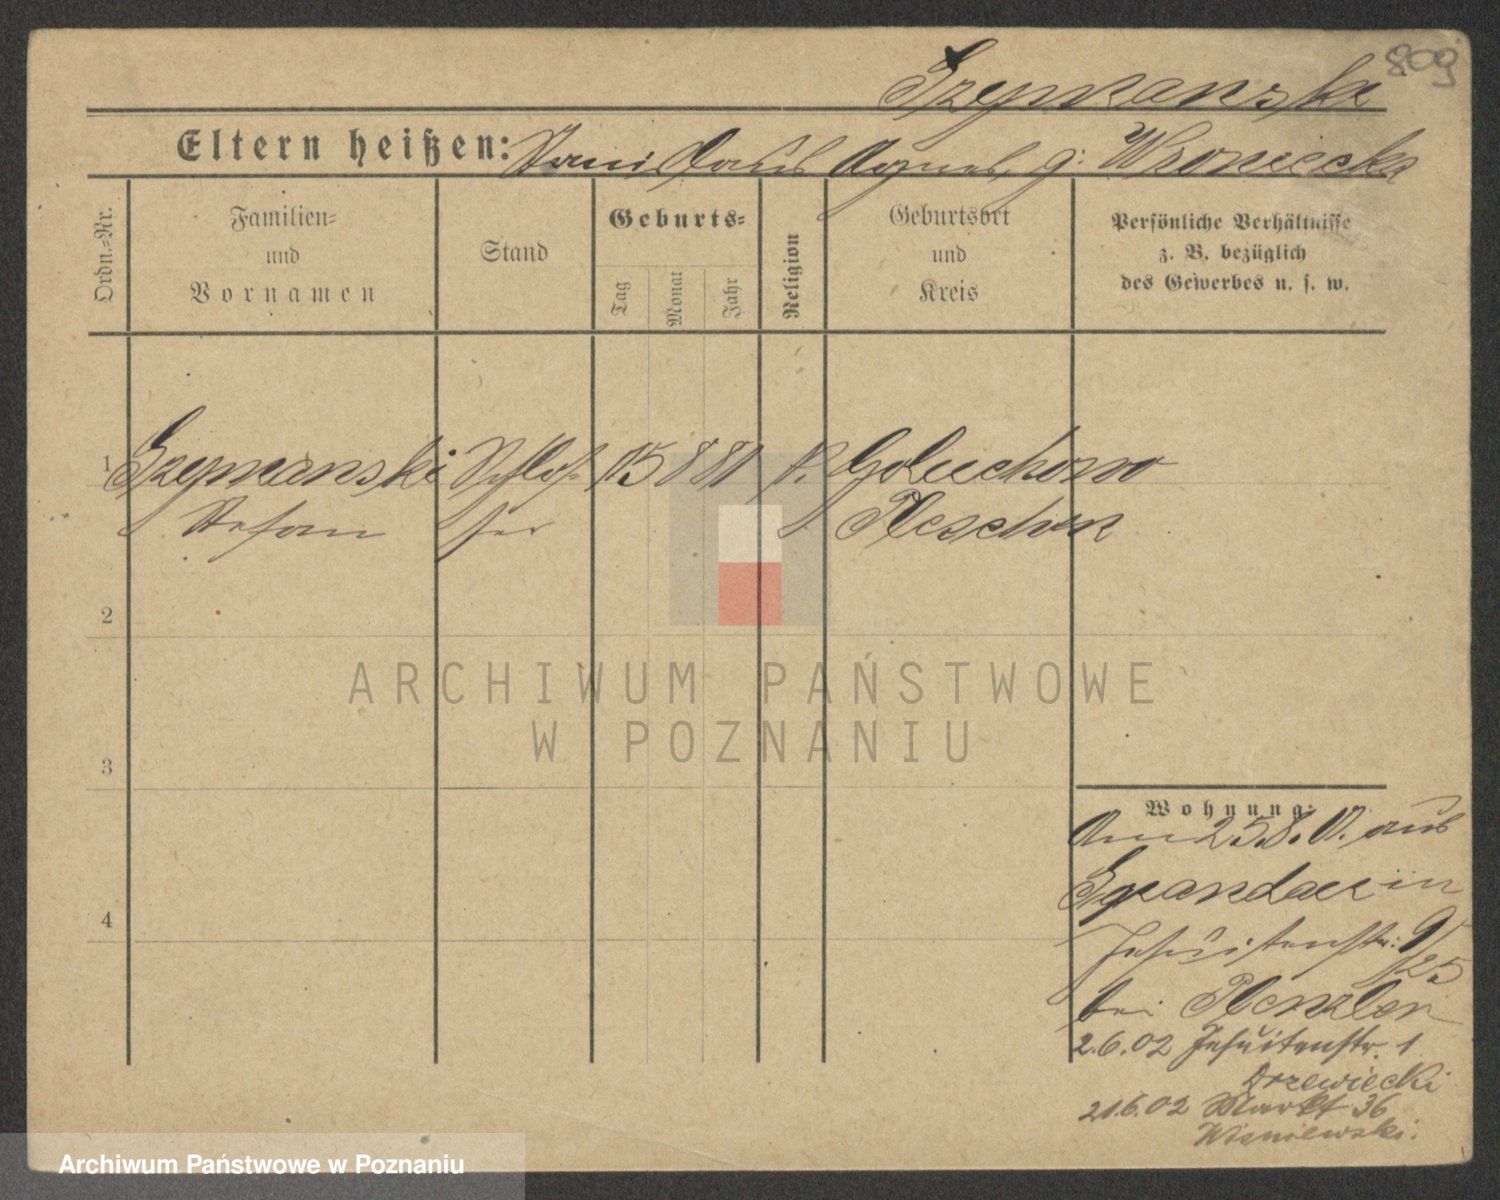 809
Szymanski
Eltern heißen: Stanislaus Agnes, g: Wroniecka
Ordn.-Nr.
Familien-
und
Vornamen
Stand
Geburts-
Tag
Monat
Jahr
Religion
Geburtsort
und
Kreis
Persönliche Verhältnisse
z. B. bezüglich
des Gewerbes u. s. w.
1 Szymanski Schlos- 15 8 81 k. Goluchowo
Stefan ser Pleschen
2
ARCHIWUM PAŃSTWOWE
W POZNANIU
3
Wohnung:
Am 25.8.01. aus
Spandau in
Jesuitenstr: 9/25
bei
4
2.6.02 Jesuitenstr. 1
Drzewiecki
21.6.02 Markt 36
Wisniewski.
Archiwum Państwowe w Poznaniu